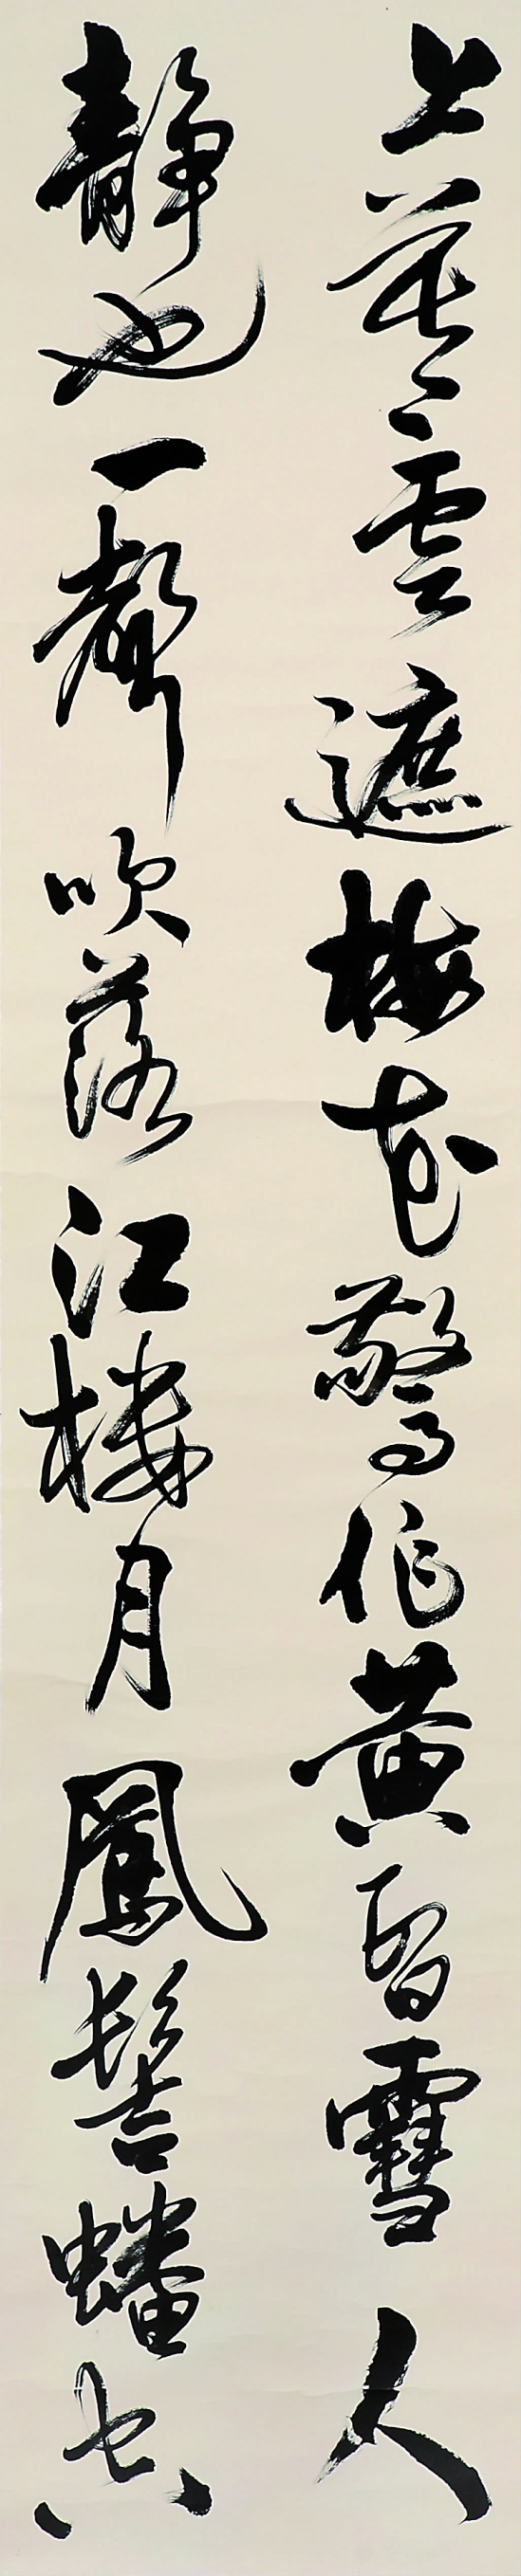 上暮雲遮梅花驚作黄昏雪人
靜也一聲吹落江樓月鳳髻蟠空